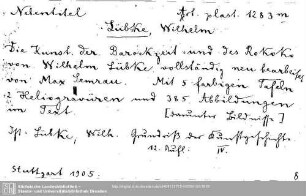 Nebentitel Art. plast. 1283 m
Lübke, Wilhelm
Die Kunst der Barockzeit und des Rokoko
von Wilhelm Lübke, vollständig neu bearbeitet
von Max Semrau. Mit 5 farbigen Tafeln
2 Heliogravüren und 385 Abbildungen
im Text. [darunter Bildnisse]
Lübke, Wilh. Grundriß der Kunstgeschichte
12. Aufl. IV.
Stuttgart 1905.
8